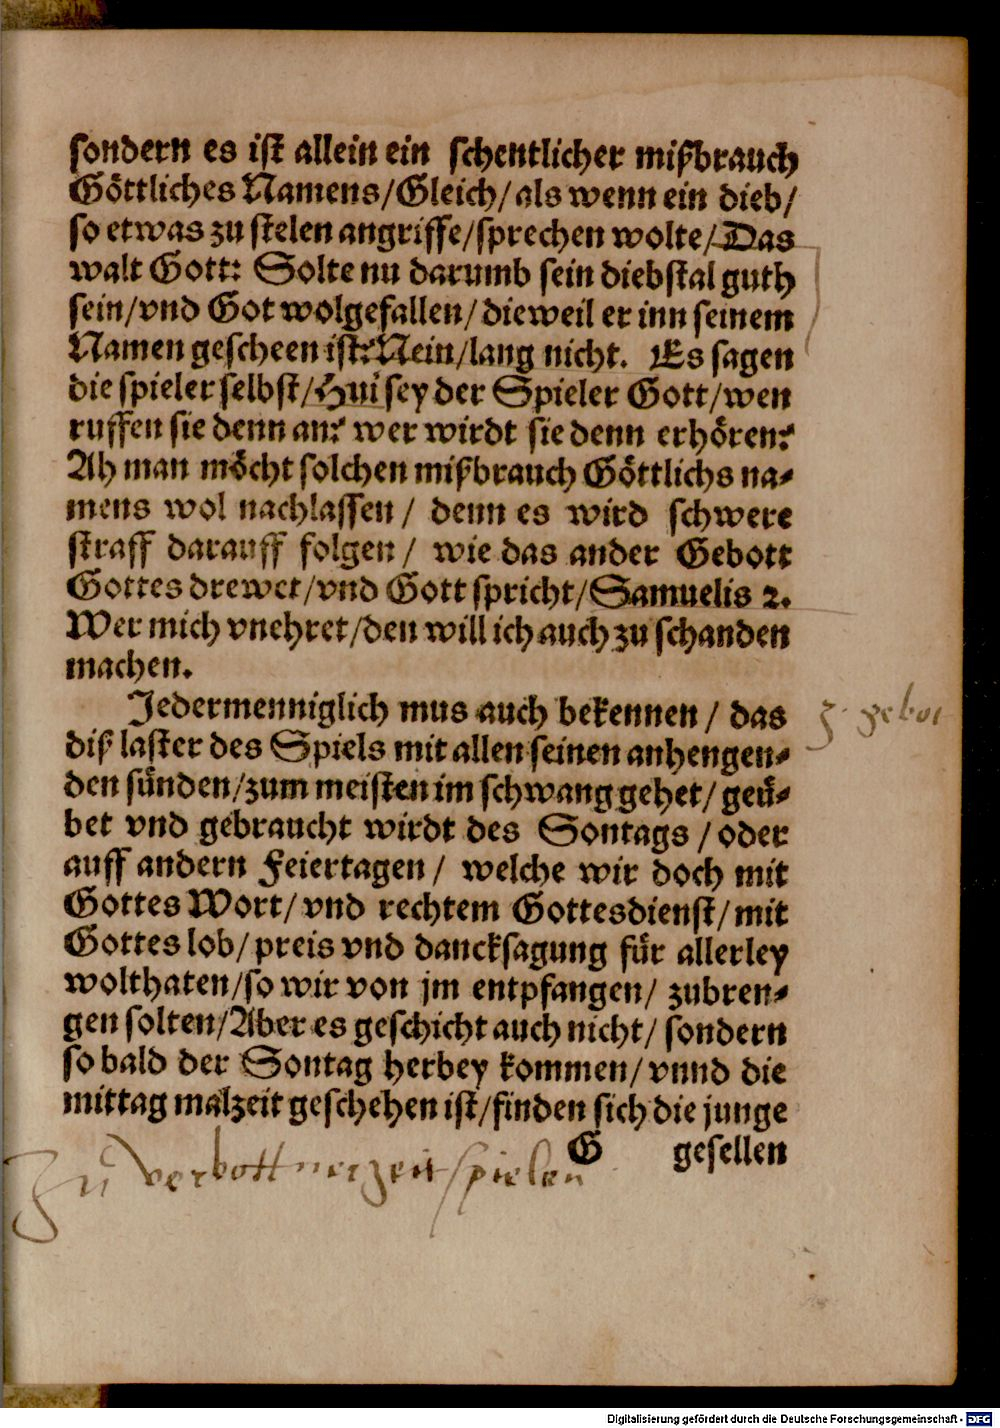 sondern es ist allein ein schentlicher mißbrauch
Göttliches Namens/Gleich/als wenn ein dieb/
so etwas zu stelen angriffe/sprechen wolte/Das
walt Gott: Solte nu darumb sein diebstal guth
sein/vnd Got wolgefallen/dieweil er inn seinem
Namen gescheen ist? Nein/lang nicht. Es sagen
die spieler selbst/Hui sey der Spieler Gott/wen
ruffen sie denn an? wer wirdt sie denn erhören?
Ah man möcht solchen mißbrauch Göttlichs na-
mens wol nachlassen/ denn es wird schwere
straff darauff folgen/ wie das ander Gebott
Gottes drewet/vnd Gott spricht/Samuelis 2.
Wer mich vnehret/den will ich auch zu schanden
machen.
Jedermenniglich mus auch bekennen/ das
diß laster des Spiels mit allen seinen anhengen-
den sünden/zum meisten im schwang gehet/ geü-
bet vnd gebraucht wirdt des Sontags/oder
auff andern Feiertagen/ welche wir doch mit
Gottes Wort/vnd rechtem Gottesdienst/mit
Gottes lob/preis vnd dancksagung für allerley
wolthaten/so wir von jm entpfangen/ zubren-
gen solten/Aber es geschicht auch nicht/ sondern
so bald der Sontag herbey kommen/ vnnd die
mittag malzeit geschehen ist/finden sich die junge
G gesellen
3. gebot
Zu verbottner zeit spielen
Digitalisierung gefördert durch die Deutsche Forschungsgemeinschaft - DFG